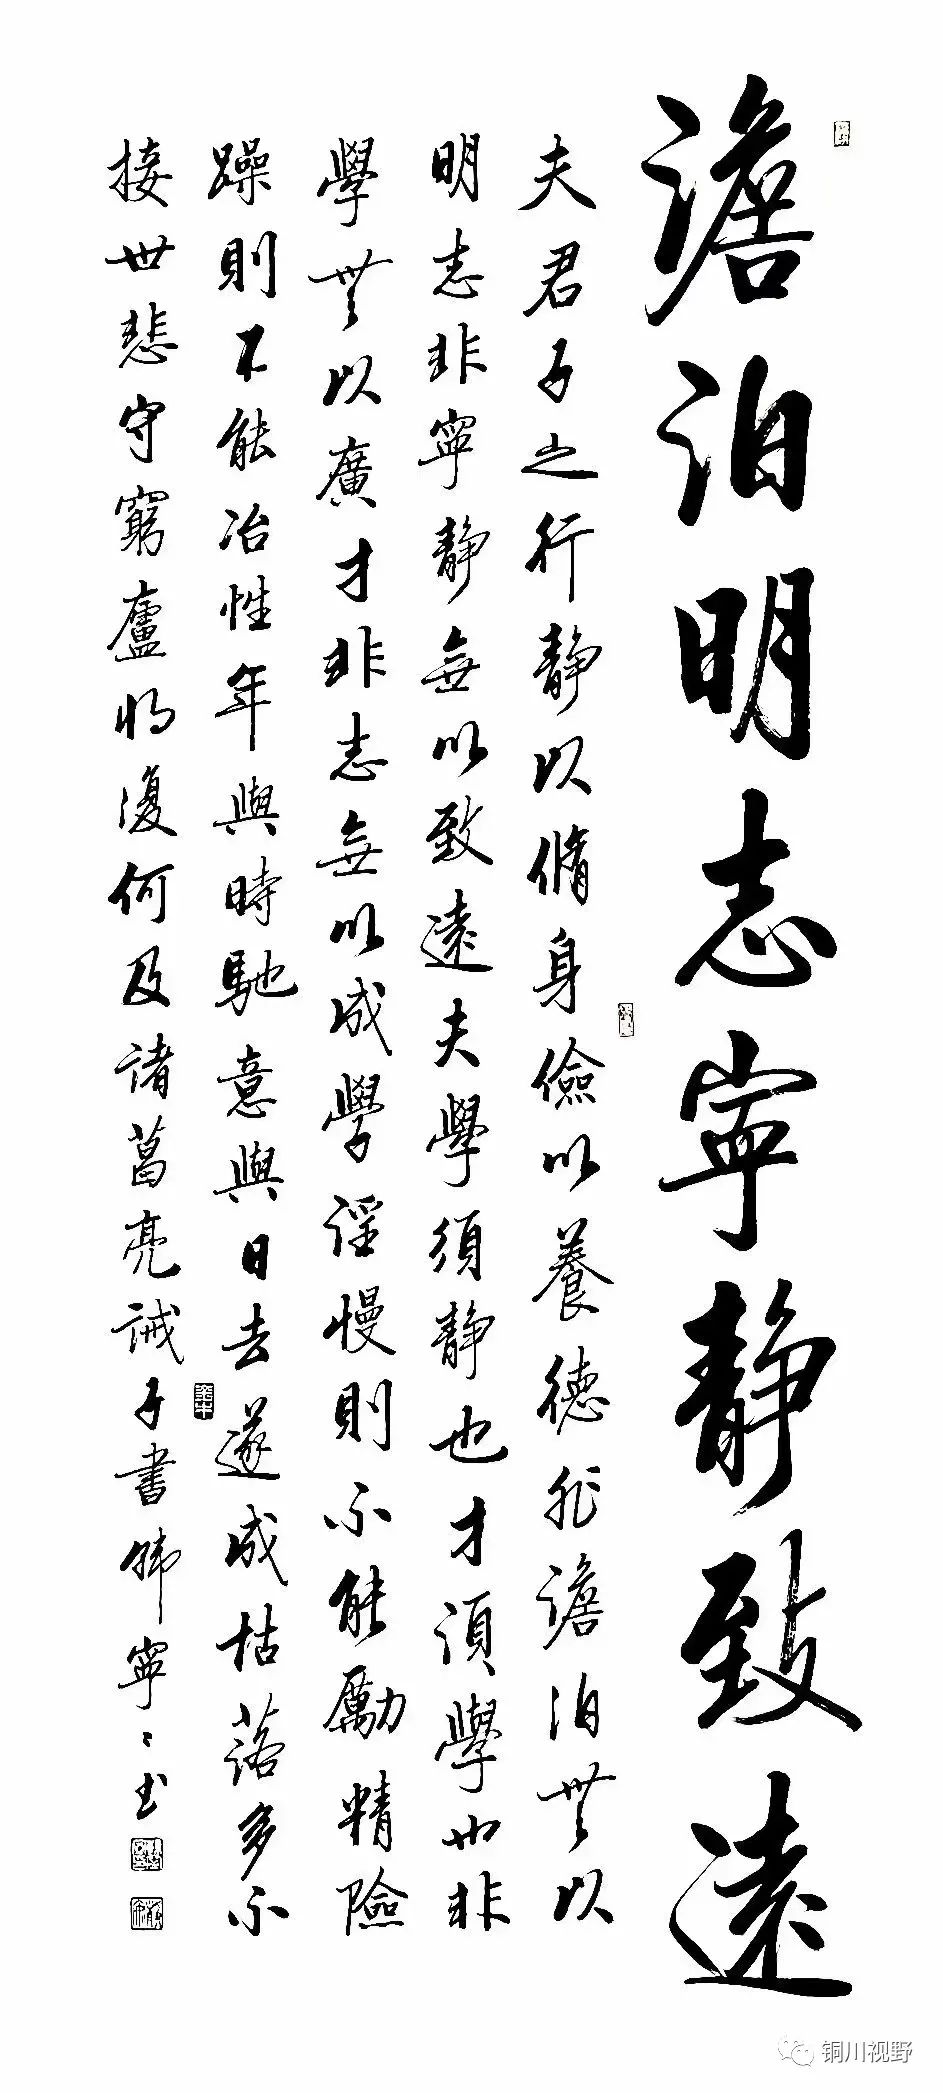 澹泊明志寧静致遠
夫君子之行静以脩身儉以養德非澹泊無以
明志非寧静無以致遠夫學須静也才須學也非
學無以廣才非志無以成學淫慢則不能勵精險
躁則不能冶性年與時馳意與日去遂成枯落多不
接世悲守窮廬将復何及諸葛亮誡子書韩寧寧书
铜川视野